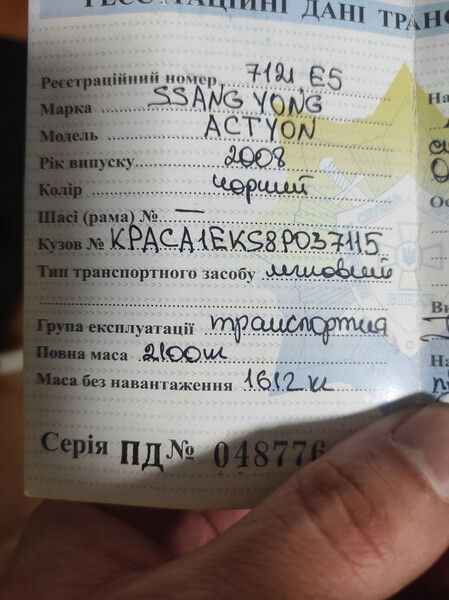 РЕЄСТРАЦІЙНІ ДАНІ ТРАНС
Реєстраційний номер 7121 Е5
Марка SSANG YONG
Модель ACTYON
Рік випуску 2008
Колір чорний
Шасі (рама) № —
Кузов № KPACA1EKS8P037115
Тип транспортного засобу легковий
Група експлуатації транспортна
Повна маса 2100кг
Маса без навантаження 1612 кг
Серія ПД № 048776